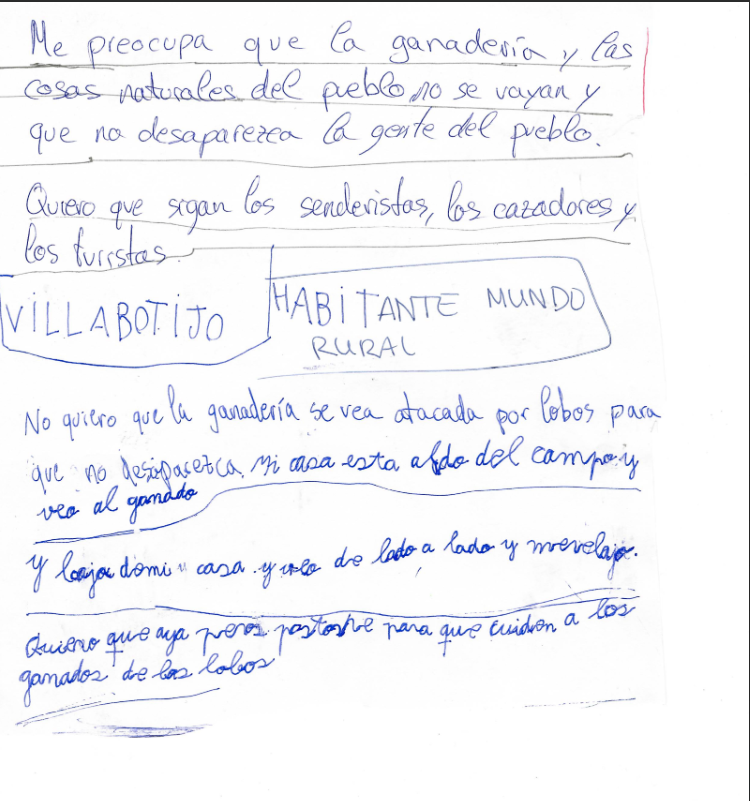 Me preocupa que la ganadería y las
cosas naturales del pueblo no se vayan y
que no desaparezca la gente del pueblo.
Quiero que sigan los senderistas, los cazadores y
los turistas.
VILLABOTIJO
HABITANTE MUNDO
RURAL
No quiero que la ganadería se vea atacada por lobos para
que no desaparezca. Mi casa esta del campo y
veo al ganado
y casa y de lado a lado y
Quiero que aya para que cuiden a los
ganados de los lobos